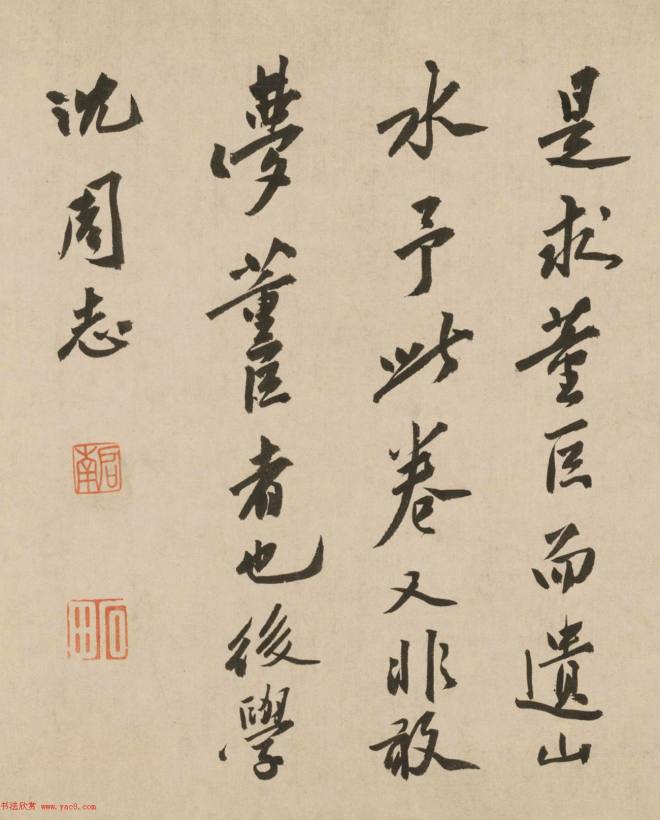 是求董巨而遺山
水予此卷又非敢
夢董巨者也後學
沈周志
啟南
石田
书法欣赏 www.yac8.com